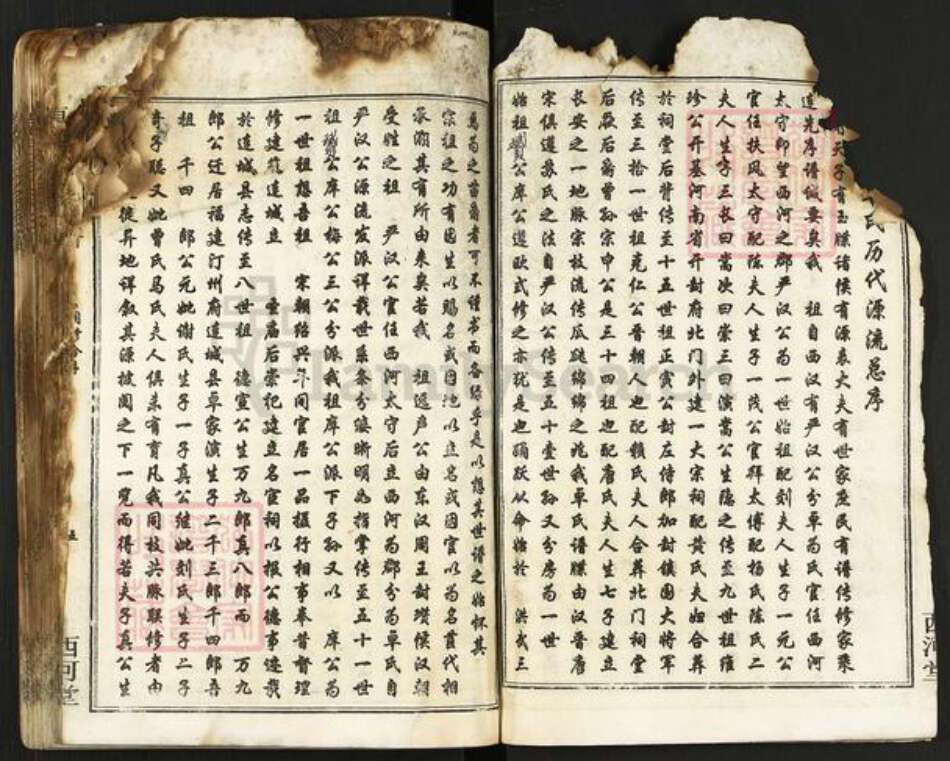 氏历代源流总序
天子有玉牒诸侯有源表大夫有世家庶民有谱传修家乘
造先序谱诚要矣我 祖自西汉有严汉公分卓为氏官任西河
太守即望西河之郡严汉公为一世始祖配刘夫人生子一元公
官任扶风太守配陈夫人生子一茂公官拜太傅配杨氏陈氏二
夫人生子三长曰嵩次曰崇三曰演嵩公生隐之传至九世祖雍
珍公开基河南省开封府北门外建一大宗祠配黄氏夫妇合葬
於祠堂后背传至十五世祖正寅公封左侍郎加封镇国大将军
传至三拾一世祖克仁公晋朝人也配赖氏夫人合葬北门祠堂
后厥后裔曾孙宗申公是三十四祖也配唐氏夫人生七子建立
长安之一地脉宗枝流传瓜瓞绵绵之兆我卓氏谱牒由汉晋唐
宋俱遵苏氏之法自严汉公传至五十壹世孙又分房为一世
始祖 公库公遵欧式修之亦犹是也 跃从命始於 洪武三
为 之苗裔者可不谨书而各录乎是以想其世谱之始怀其
宗祖之功有因生以赐名或因地以立名或因官以为名万代相
承溯其有所由来矣若我 祖 声公由东汉周王封 侯汉朝
受姓之祖 严汉公官任西河太守后立西河为郡分为卓氏自
严汉公源流发派详载世系条分缕晰明如指掌传至五十一世
祖 公库公梅公三公分派我祖库公派下子孙又以 库公为
一世祖想吾祖 宋朝绍兴年间官居一品摄行相事奉旨督理
修建 连城立 圣庙后崇祀建立名宦祠以报公德事迹载
於连城县志传至八世祖 德宣公生万九郎真八郎而 万九
郎公迁居福建汀州府连城县卓家演生子二千三郎千四郎吾
祖 千四 郎公元妣谢氏生子一子真公继妣刘氏生子二子
奇子聪又妣曾氏马氏夫人俱未有育凡我同枝共脉联修者由
徙昇地详叙其源披阅之下一览而得若夫子真公生
五
西河堂
西河堂